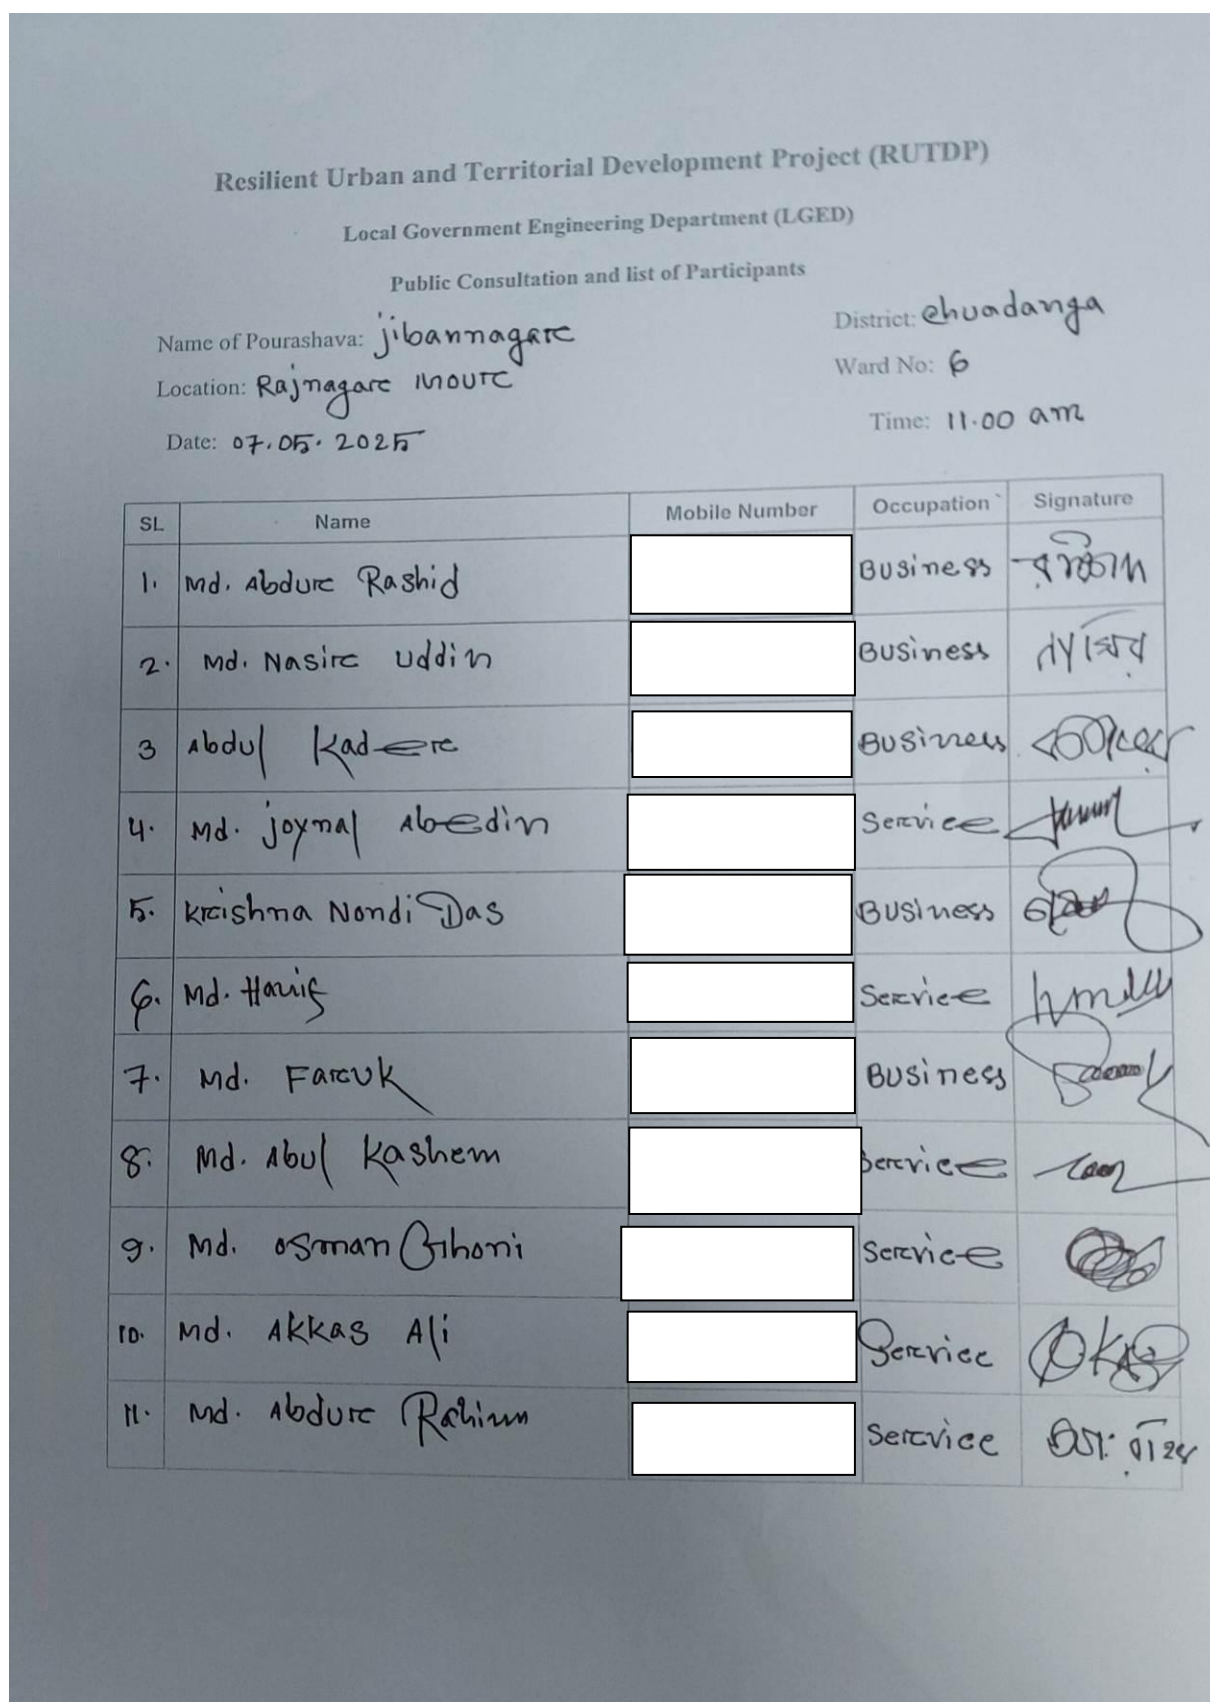 Resilient Urban and Territorial Development Project (RUTDP)
Local Government Engineering Department (LGED)
Public Consultation and list of Participants
Name of Pourashava: Jibannagar District: Chuadanga
Location: Rajnagar mour Ward No: 6
Date: 07.05.2025 Time: 11.00 am
SL Name Mobile Number Occupation Signature
1. Md. Abdur Rashid Business
2. Md. Nasir Uddin Business
3 Abdul Kader Business
4. Md. Joynal Abedin Service
5. Krishna Nondi Das Business
6. Md. Hanif Service
7. Md. Faruk Business
8. Md. Abul Kashem Service
9. Md. Osman Ghoni Service
10. Md. Akkas Ali Service
11. Md. Abdur Rahim Service